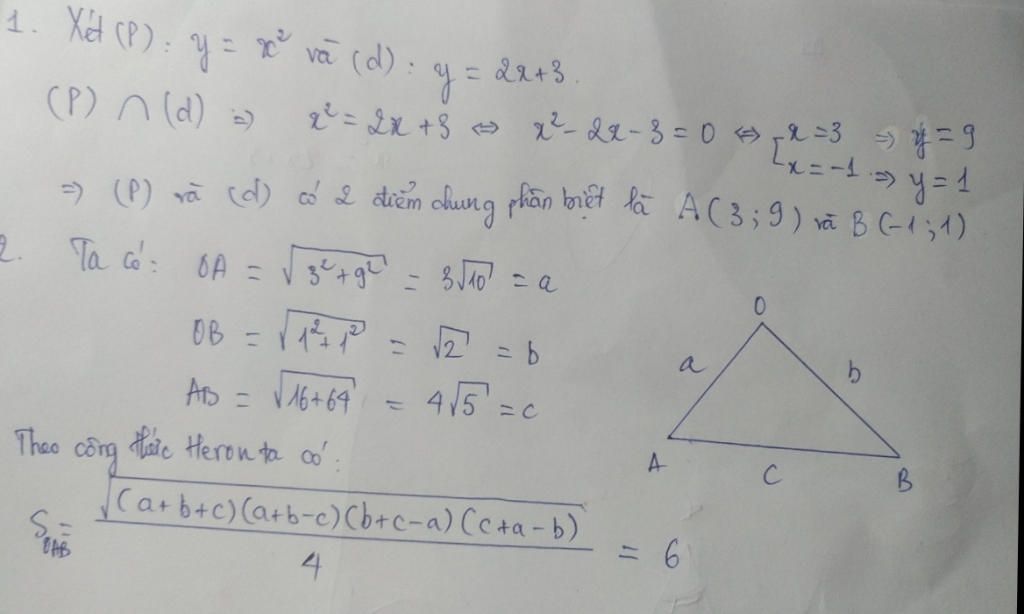 1. Xét (P): y = x² và (d): y = 2x+3.
(P) ∩ (d) ⇒ x² = 2x+3 ⇔ x² - 2x - 3 = 0 ⇔ [ x = 3 ⇒ y = 9
x = -1 ⇒ y = 1
⇒ (P) và (d) có 2 điểm chung phân biệt là A(3;9) và B(-1;1)
2. Ta có: OA = √(3²+9²) = 3√10 = a
OB = √(1²+1²) = √2 = b
AB = √(16+64) = 4√5 = c
Theo công thức Heron ta có:
S_OAB = √((a+b+c)(a+b-c)(b+c-a)(c+a-b)) / 4 = 6
O
a b
A c B